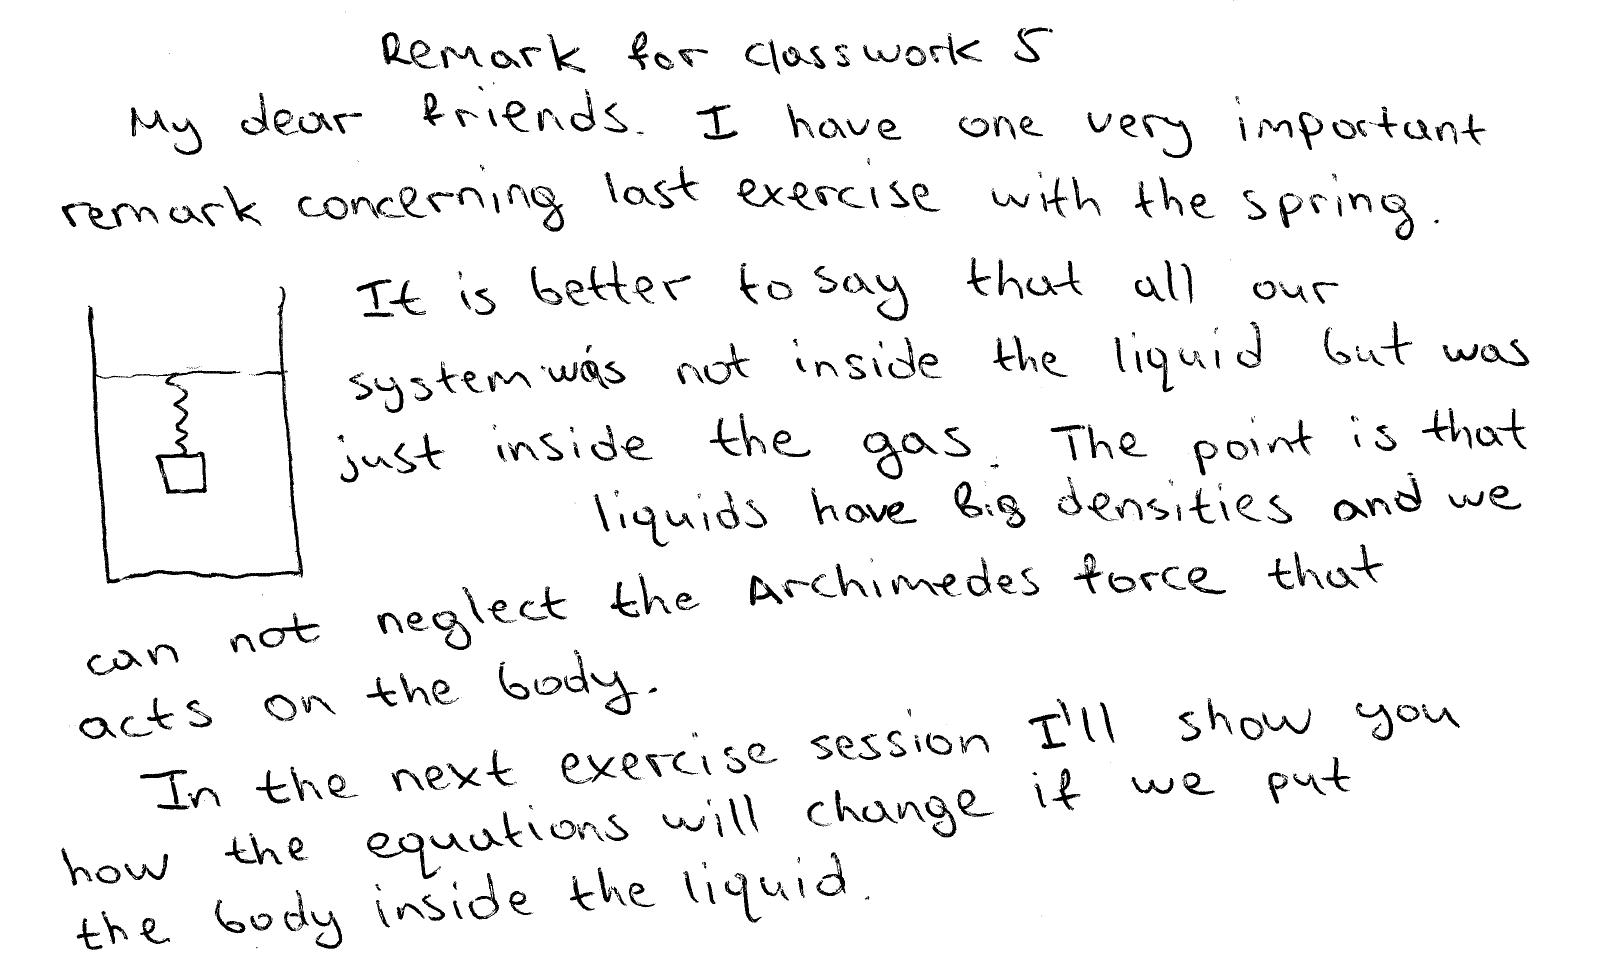 Remark for classwork 5
My dear friends. I have one very important
remark concerning last exercise with the spring.
It is better to say that all our
system was not inside the liquid but was
just inside the gas. The point is that
liquids have big densities and we
can not neglect the Archimedes force that
acts on the body.
In the next exercise session I'll show you
how the equations will change if we put
the body inside the liquid.